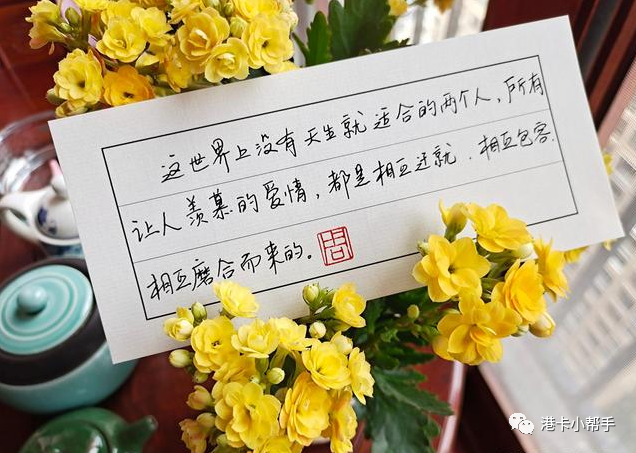 这世界上没有天生就适合的两个人，所有
让人羡慕的爱情，都是相互迁就，相互包容，
相互磨合而来的。
港卡小帮手